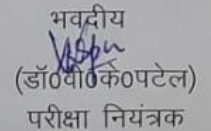 भवदीय
(डॉ0वी0के0पटेल)
परीक्षा नियंत्रक